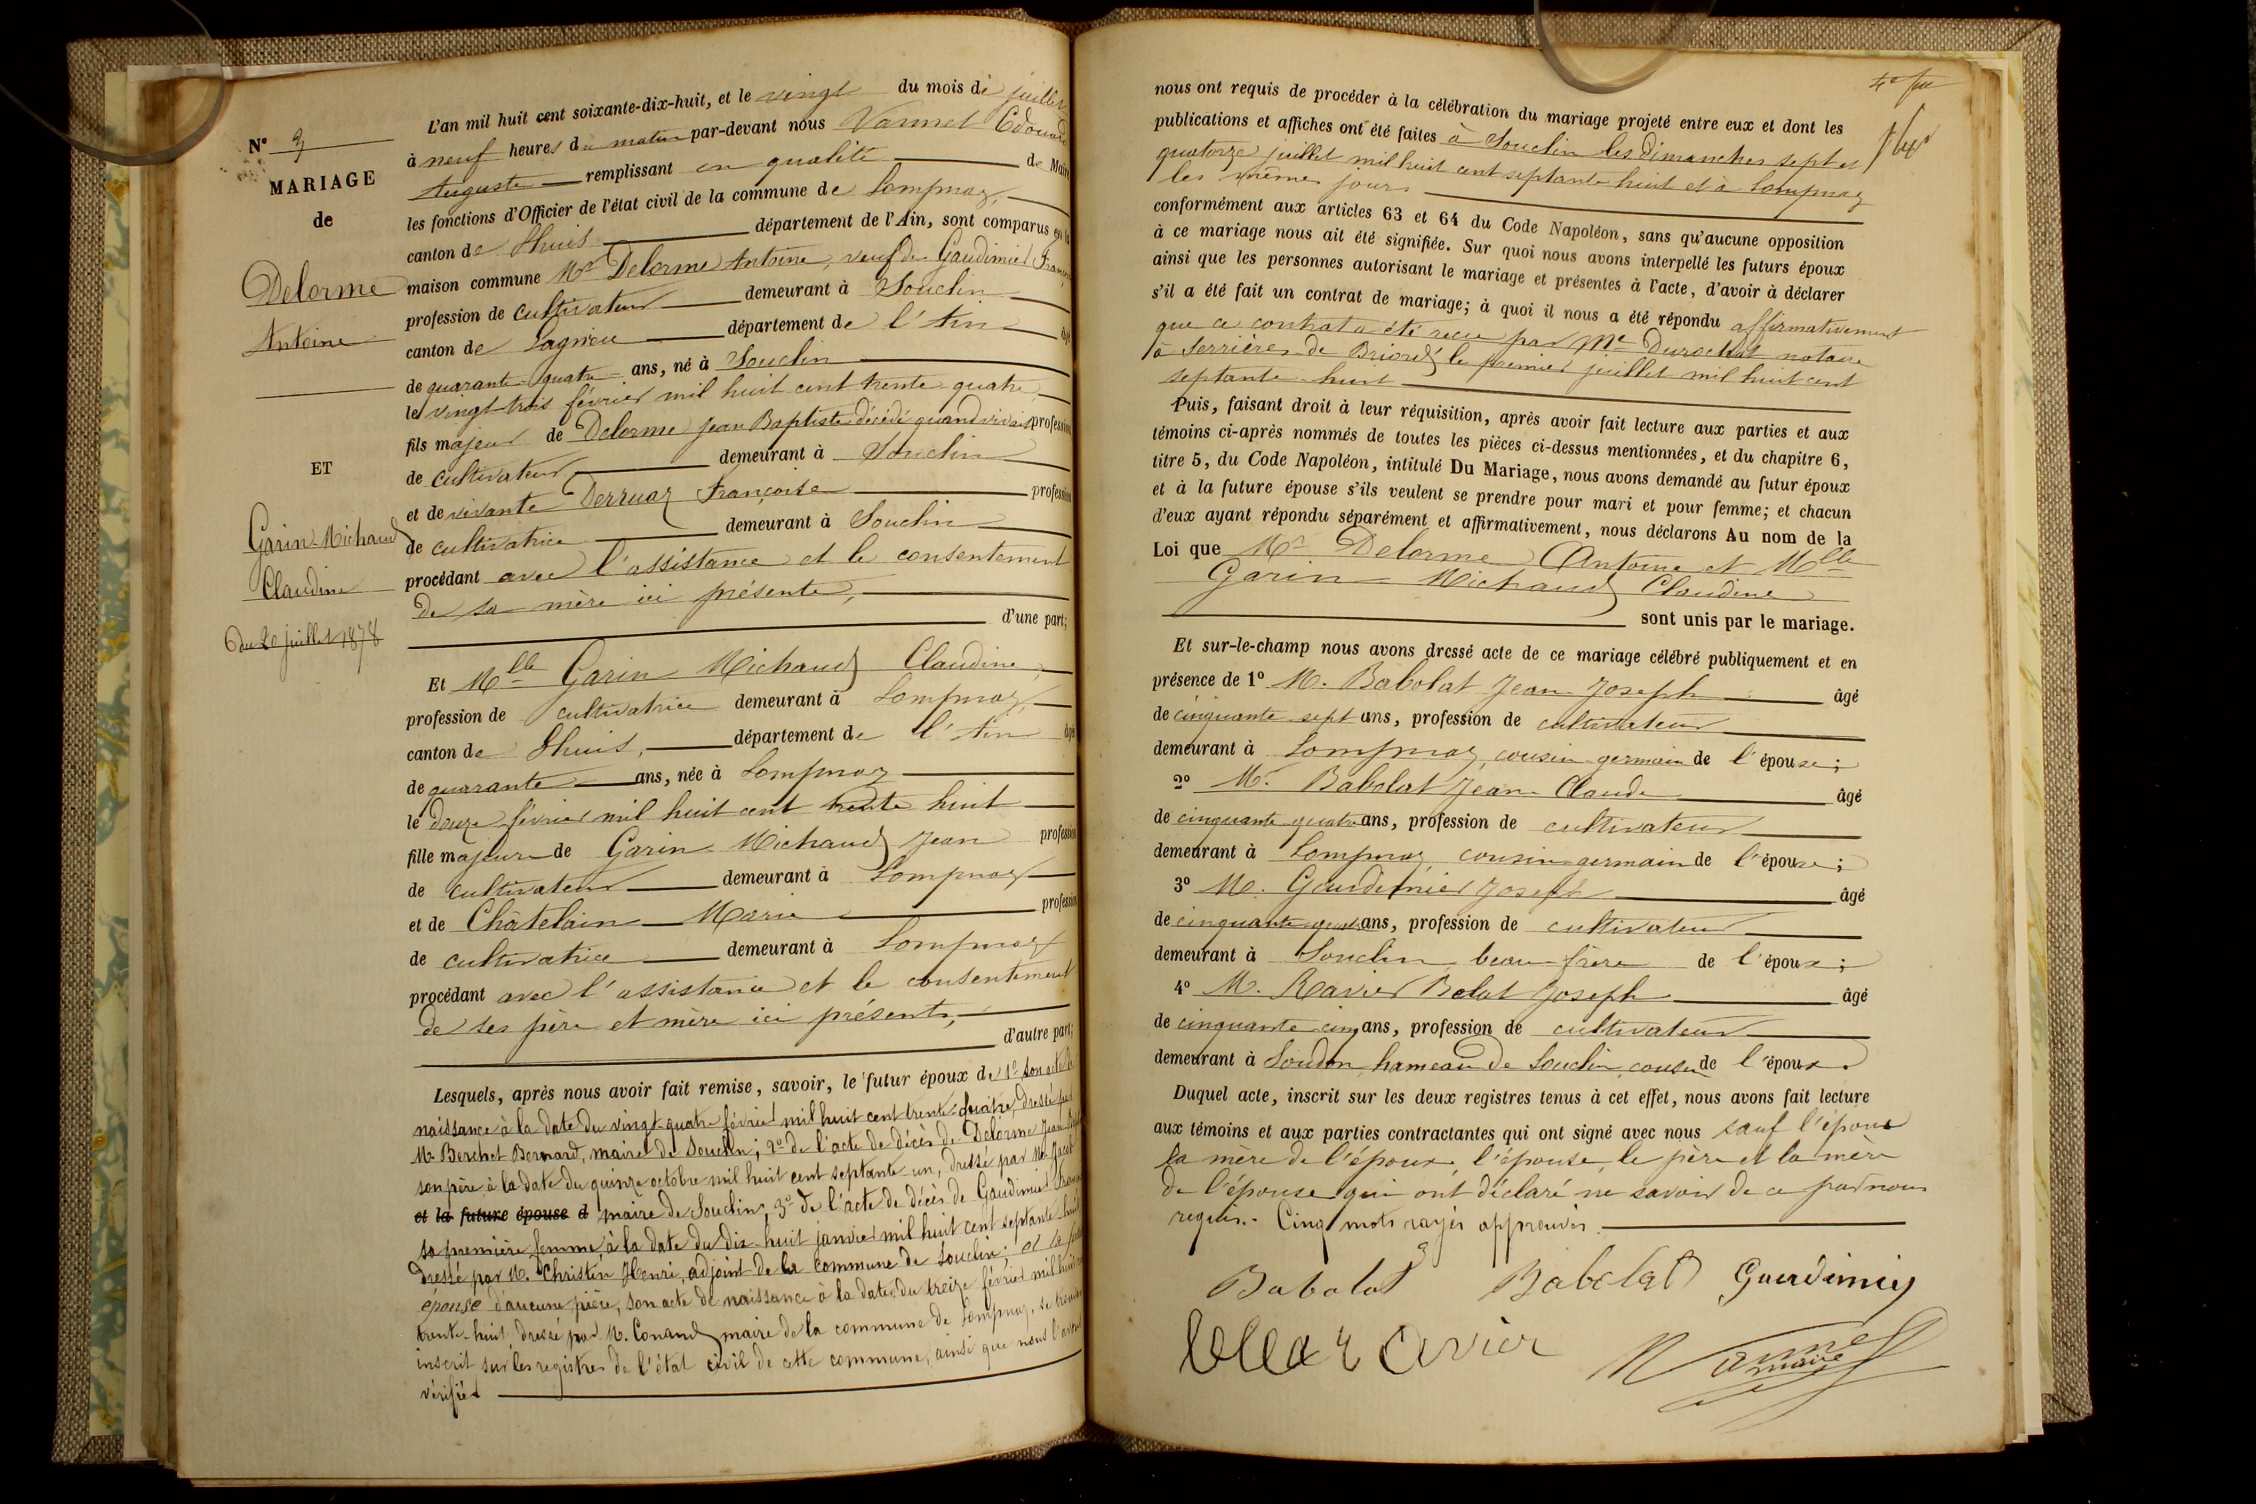 N° 3
MARIAGE
de
Delorme
Antoine
ET
Garin-Michaud
Claudine
du 20 juillet 1878
L'an mil huit cent soixante-dix-huit, et le vingt du mois de juillet
à neuf heures du matin par-devant nous Vannet Edouard
Auguste remplissant en qualité de Maire
les fonctions d'Officier de l'état civil de la commune de Lompnaz,
canton de Lhuis département de l'Ain, sont comparus en la
maison commune Mr Delorme Antoine, veuf de Gaudimier
profession de cultivateur demeurant à Souclin
canton de Lagnieu département de l'Ain âgé
de quarante-quatre ans, né à Souclin
le vingt-trois février mil huit cent trente-quatre,
fils majeur de Delorme Jean Baptiste décédé quand vivait profession
de cultivateur, demeurant à Souclin
et de vivante Derruaz Françoise profession
de cultivatrice demeurant à Souclin
procédant avec l'assistance et le consentement
de sa mère ici présente,
d'une part;
Et Mlle Garin-Michaud Claudine,
profession de cultivatrice demeurant à Lompnaz,
canton de Lhuis, département de l'Ain âgé
de quarante ans, née à Lompnaz
le douze février mil huit cent trente huit
fille majeure de Garin-Michaud Jean profession
de cultivateur demeurant à Lompnaz
et de Châtelain Marie profession
de cultivatrice demeurant à Lompnaz
procédant avec l'assistance et le consentement
de ses père et mère ici présents,
d'autre part;
Lesquels, après nous avoir fait remise, savoir, le futur époux de 1° son acte de
naissance à la date du vingt-quatre février mil huit cent trente-quatre, dressé par
Mr Berchet Bernard, maire de Souclin; 2° de l'acte de décès de Delorme Jean
son père à la date du quinze octobre mil huit cent septante un, dressé par Mr
et la future épouse d maire de Souclin; 3° de l'acte de décès de Gaudimier
sa première femme à la date du dix-huit janvier mil huit cent septante-huit
dressé par M. Christin Henri, adjoint de la commune de Souclin; et la
épouse d'aucune pièce, son acte de naissance à la date du treize février mil huit
trente-huit dressé par M. Conand maire de la commune de Lompnaz, se trouve
inscrit sur les registres de l'état civil de cette commune, ainsi que nous l'avons
vérifié
nous ont requis de procéder à la célébration du mariage projeté entre eux et dont les
publications et affiches ont été faites à Souclin les dimanches sept et
quatorze juillet mil huit cent septante huit et à Lompnaz
les mêmes jours
conformément aux articles 63 et 64 du Code Napoléon, sans qu'aucune opposition
à ce mariage nous ait été signifiée. Sur quoi nous avons interpellé les futurs époux
ainsi que les personnes autorisant le mariage et présentes à l'acte, d'avoir à déclarer
s'il a été fait un contrat de mariage; à quoi il nous a été répondu affirmativement
que ce contrat a été reçu par Me Durochat notaire
à Serrières-de-Briord le premier juillet mil huit cent
septante-huit
Puis, faisant droit à leur réquisition, après avoir fait lecture aux parties et aux
témoins ci-après nommés de toutes les pièces ci-dessus mentionnées, et du chapitre 6,
titre 5, du Code Napoléon, intitulé Du Mariage, nous avons demandé au futur époux
et à la future épouse s'ils veulent se prendre pour mari et pour femme; et chacun
d'eux ayant répondu séparément et affirmativement, nous déclarons Au nom de la
Loi que Mr Delorme Antoine et Mlle
Garin-Michaud Claudine
sont unis par le mariage.
Et sur-le-champ nous avons dressé acte de ce mariage célébré publiquement et en
présence de 1° M. Babolat Jean-Joseph âgé
de cinquante-sept ans, profession de cultivateur
demeurant à Lompnaz, cousin germain de l'épouse;
2° M. Babolat Jean-Claude âgé
de cinquante quatre ans, profession de cultivateur
demeurant à Lompnaz cousin germain de l'épouse;
3° M. Gaudimier Joseph âgé
de cinquante ans, profession de cultivateur
demeurant à Souclin beau-frère de l'époux;
4° M. Ravier Belat Joseph âgé
de cinquante-cinq ans, profession de cultivateur
demeurant à Soudon hameau de Souclin, cousin de l'époux.
Duquel acte, inscrit sur les deux registres tenus à cet effet, nous avons fait lecture
aux témoins et aux parties contractantes qui ont signé avec nous sauf l'époux
la mère de l'époux, l'épouse, le père et la mère
de l'épouse qui ont déclaré ne savoir de ce par nous
requis. Cinq mots rayés approuvés.
Babolat Babolat Gaudimier
Vannet
maire